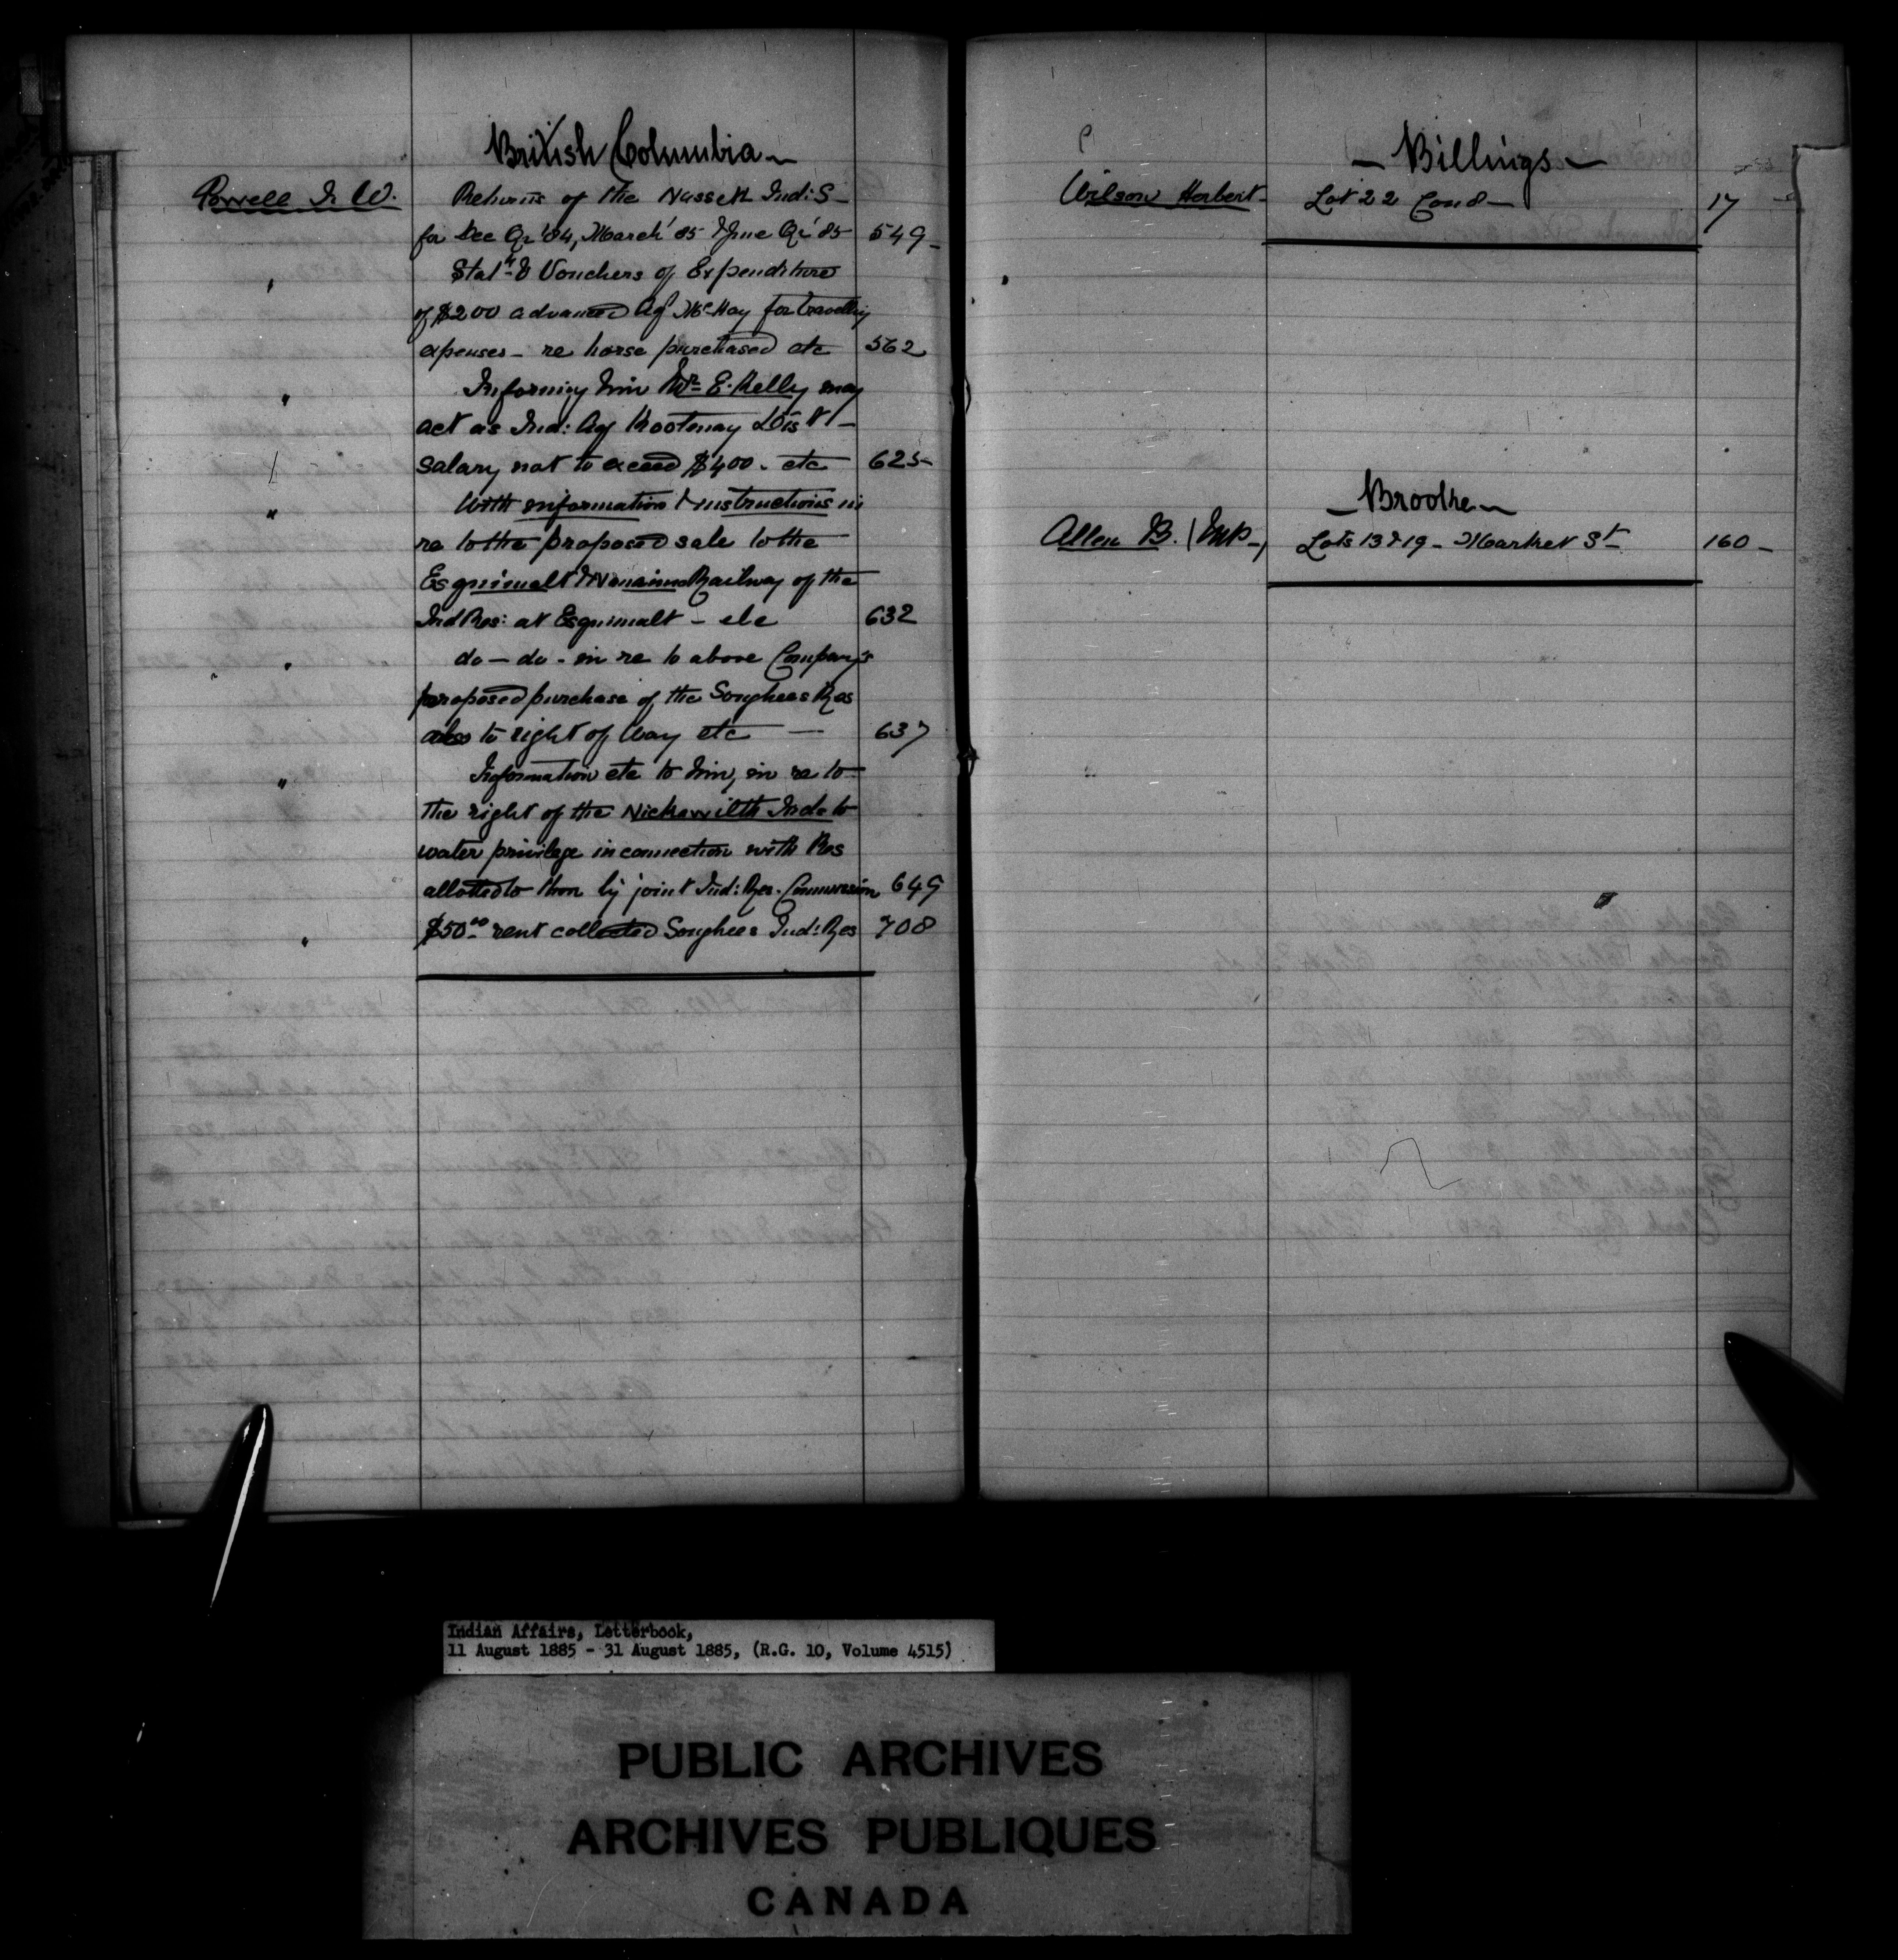 British Columbia
Powell I. W. Returns of the Nassett Ind: S
for Dec Qr '84, March '85 & June Qr '85 549
" Statt & Vouchers of Expenditure
of $200 advanced Ag McKay for travelling
expenses - re horse purchased etc 562
" Informing him Mr E. Kelly may
act as Ind: Ag Kootenay Dist -
salary not to exceed $400. etc 625
" With information & instructions in
re to the proposed sale to the
Esquimalt & Nanaimo Railway of the
Ind Res: at Esquimalt - etc 632
" do - do - in re to above Company's
proposed purchase of the Songhees Res
also to right of way etc — 637
" Information etc to him, in re to
the right of the Inds to
water privilege in connection with Res
allotted to them by joint Ind: Res. Commission 649
" $50.00 rent collected Songhees Ind: Res 708
- Billings -
Wilson Herbert - Lot 22 Con 8 - 17
- Brooke -
Allen B. Lots 13 & 19 - Market St 160 -
Indian Affairs, Letterbook,
11 August 1885 - 31 August 1885, (R.G. 10, Volume 4515)
PUBLIC ARCHIVES
ARCHIVES PUBLIQUES
CANADA